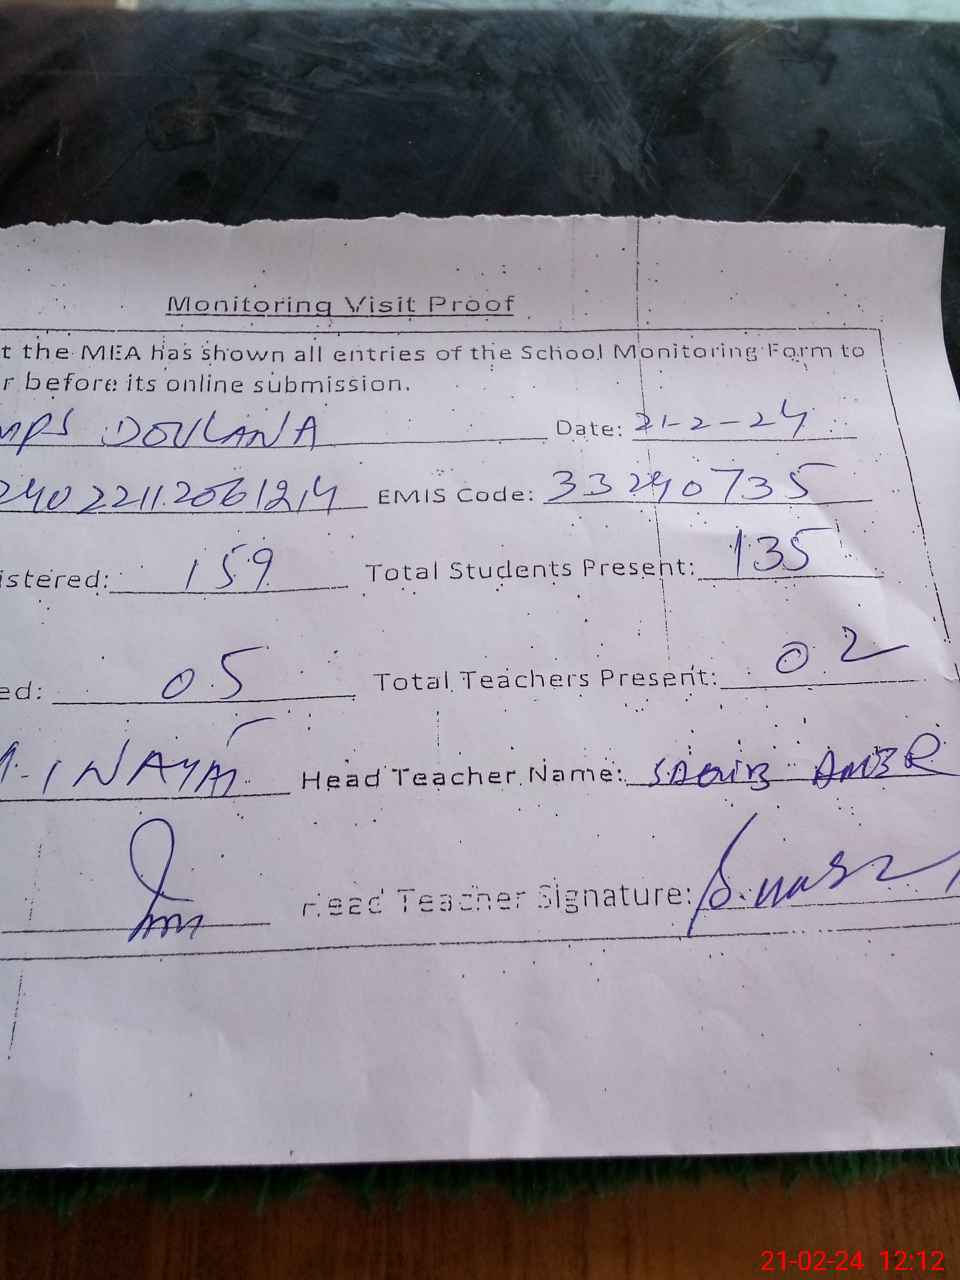 Monitoring Visit Proof
t the MEA has shown all entries of the School Monitoring Form to
r before its online submission.
MPS DOULANA Date: 21-2-24
240221120612,14 EMIS Code: 33240735
istered: 159 Total Students Present: 135
ed: 05 Total Teachers Present: 02
INAYAT Head Teacher Name: SAQIB AMER
Head Teacher Signature:
21-02-24 12:12